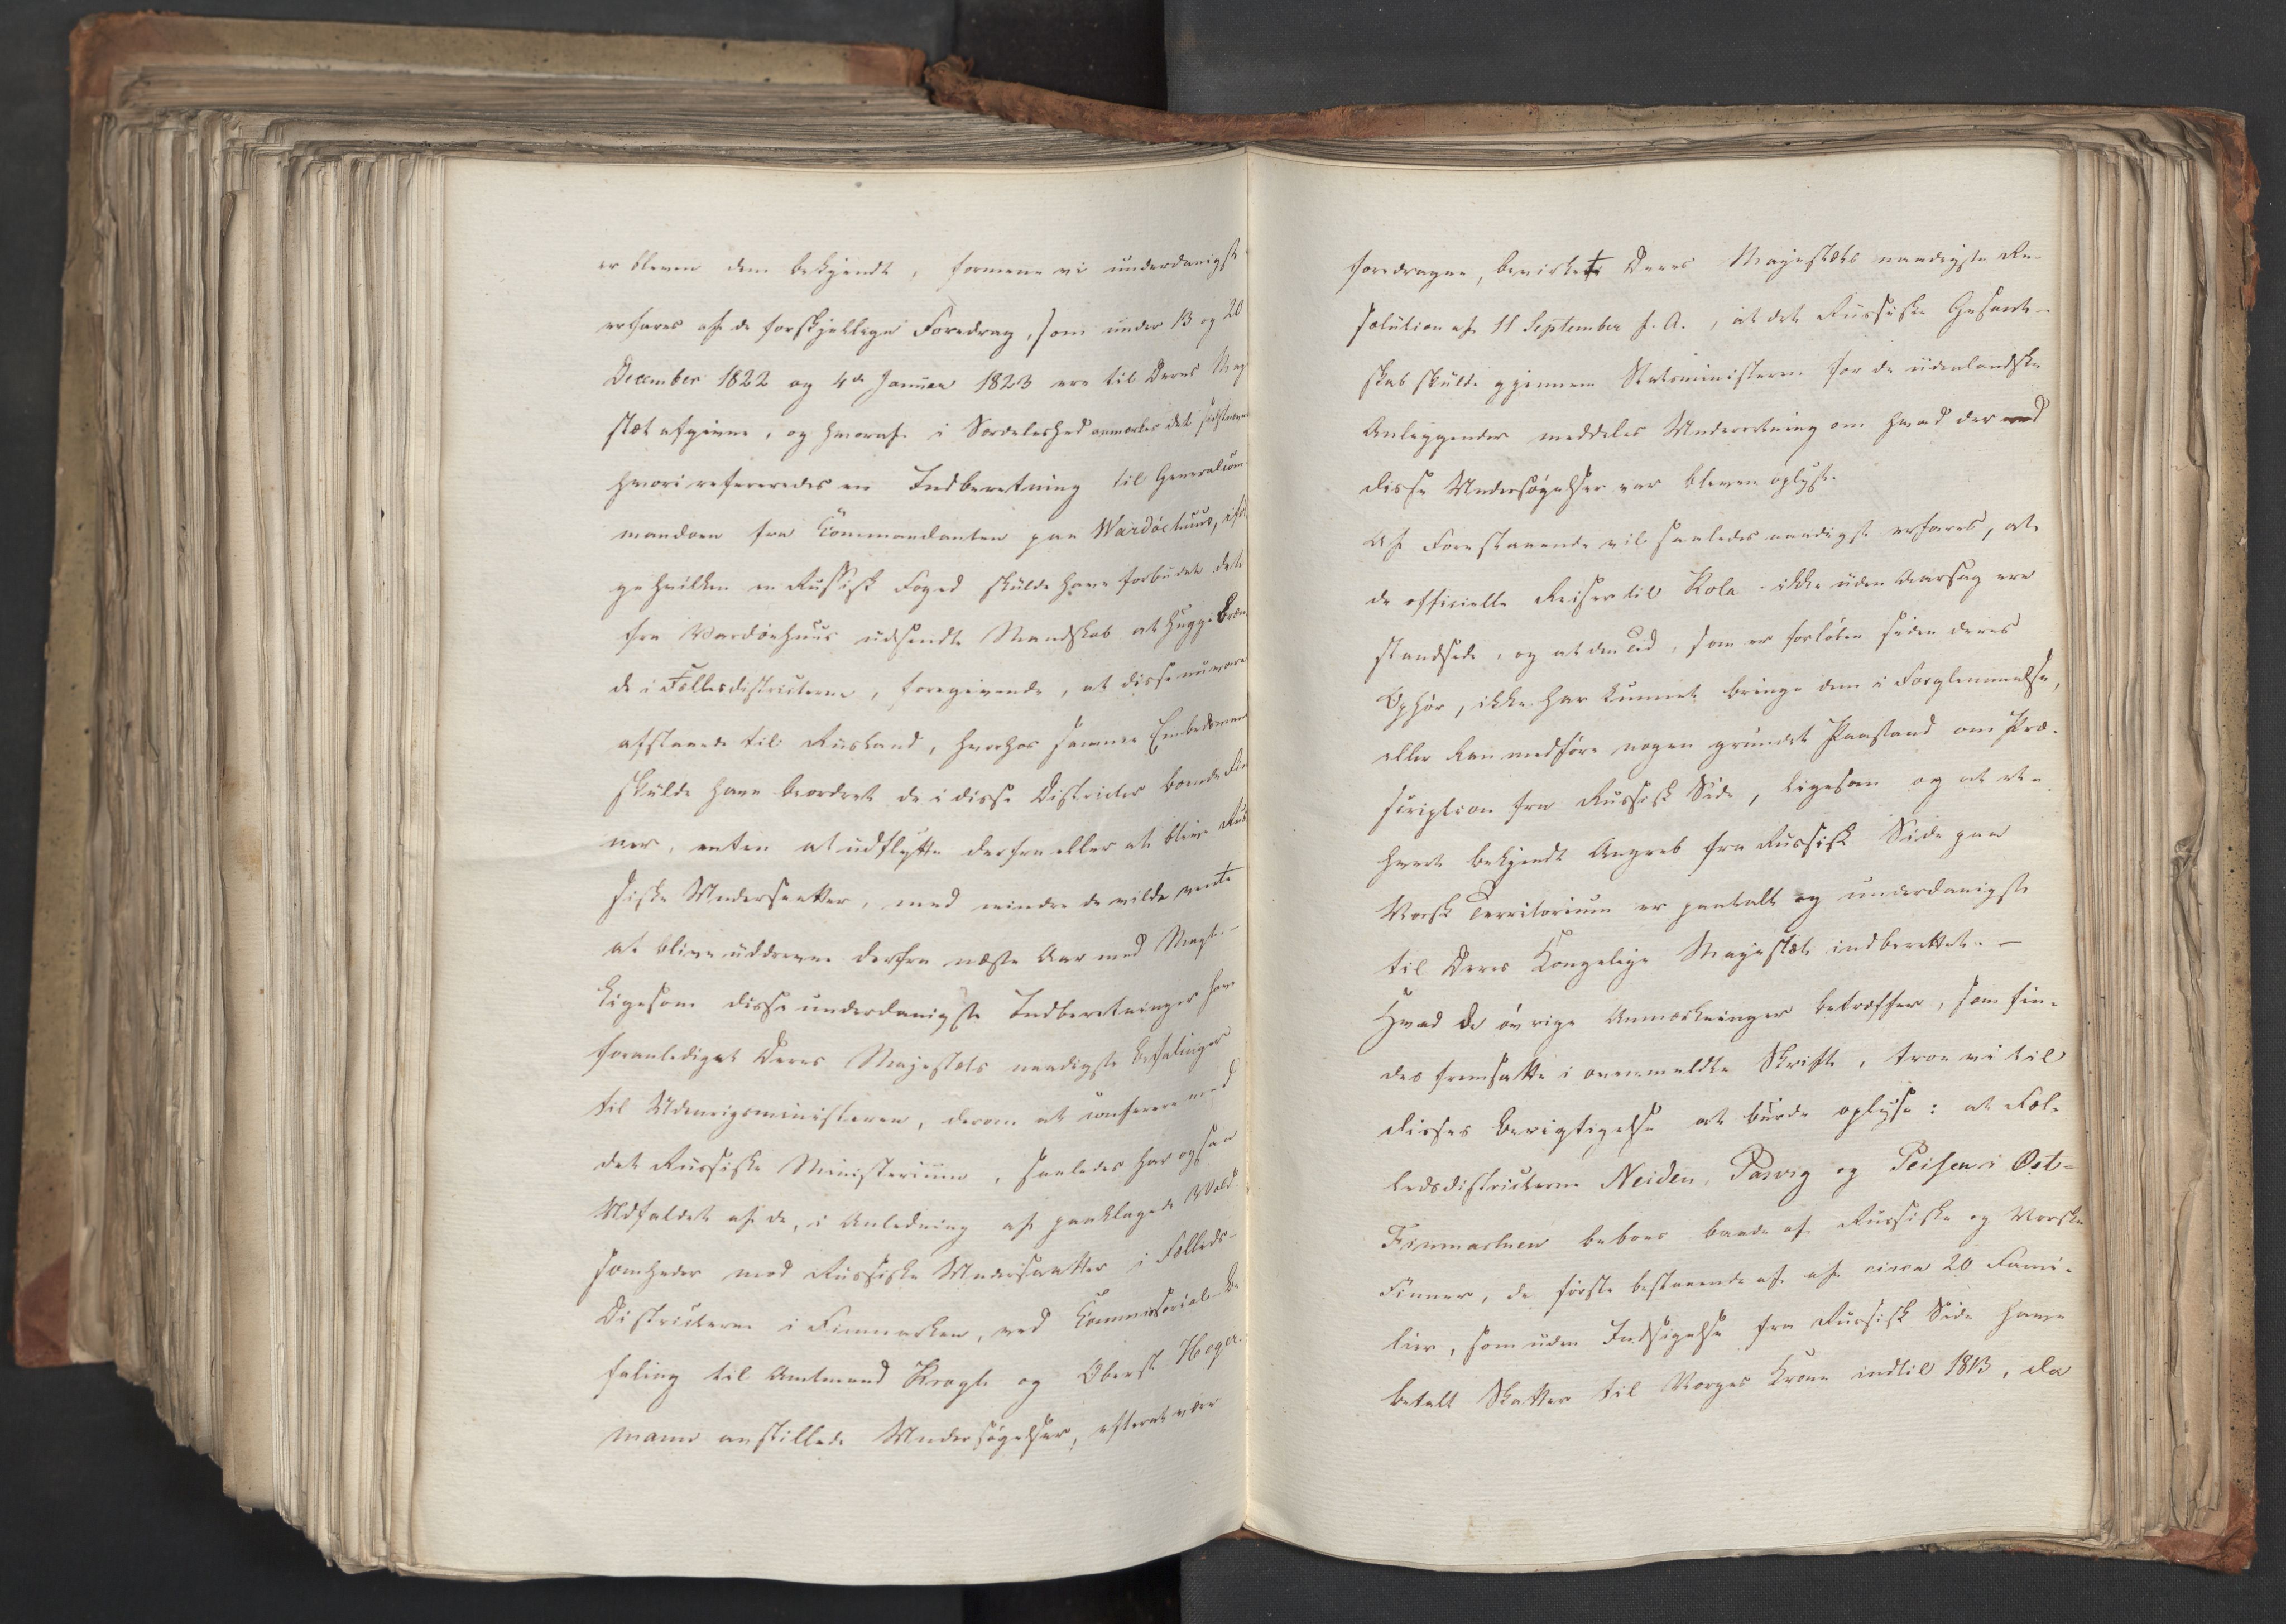 er bleven dem bekjendt, formene vi underdanigst
erfares af de forskjellige Foredrag, som under 13 og 20
December 1822 og 4de Januar 1823 ere til Deres Maj
stæt afgivne, og hvoraf i Særdeleshed anmærkes det sidstnævn
hvori refereredes en Indberetning til Generalcom-
mandoen fra Commandanten paa Wardöehuus, iföl
ge hvilken en Russisk Foged skulde have forbudet det
fra Wardöehuus udsendte Mandskab at hugge Bræn
de i Fællesdistricterne, foregivende, at disse nu vare
afstaaede til Rusland, hvorhos samme Embedsmand
skulde have beordret de i disse Districter boende Fin
ner, enten at udflytte derfra eller at blive Rus
siske Undersaatter, med mindre de vilde vente
at blive uddrevne derfra næste Aar med Magt. -
Ligesom disse underdanigste Indberetninger have
foranlediget Deres Majestæts naadigste Befalinger
til Udenrigsministeren, derom at conferere med
det Russiske Ministerium, saaledes har ogsaa
Udfaldet af de, i Anledning af paaklagede Vold-
somheder mod Russiske Undersaatter i Fælleds-
Districterne i Finmarken, ved Commissorial-Be
faling til Amtmand Krogh og Oberst Heger-
mann anstillede Undersøgelser, efterat være
foredragne, bevirket Deres Majestæts naadigste Re-
solution af 11 September f. A., at det Russiske Gesandt-
skab skulde gjennem Statsministeren for de udenlandske
Anliggender meddeles Underretning om hvad der ved
disse Undersøgelser var bleven oplyst.
Af Forestaaende vil saaledes naadigst erfares, at
de officielle Reiser til Kola ikke uden Aarsag ere
standsede, og at den Tid, som er forløben siden deres
Ophør, ikke har kunnet bringe dem i Forglemmelse,
eller kan medføre nogen grundet Paastand om Præ-
scription fra Russisk Side, ligesom og at et-
hvert bekjendt Angreb fra Russisk Side paa
Norsk Territorium er paatalt og underdanigst
til Deres Kongelige Majestæt indberettet. -
Hvad de øvrige Anmærkninger betræffer, som fin-
des fremsatte i ovenmeldte Skrift, troe vi til
disses Berigtigelse at burde oplyse: at Fæl-
ledsdistricterne Neiden, Pasvig og Peisen i Øst-
Finmarken beboes baade af Russiske og Norske
Finner, de første bestaaende af af circa 20 Fami-
lier, som uden Indsigelse fra Russisk Side have
betalt Skatter til Norges Krone indtil 1813, da